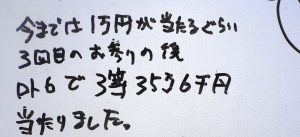 今までは1万円が当たるぐらい
3回目のお参りの後
ロト6で3等35万6千円
当たりました。